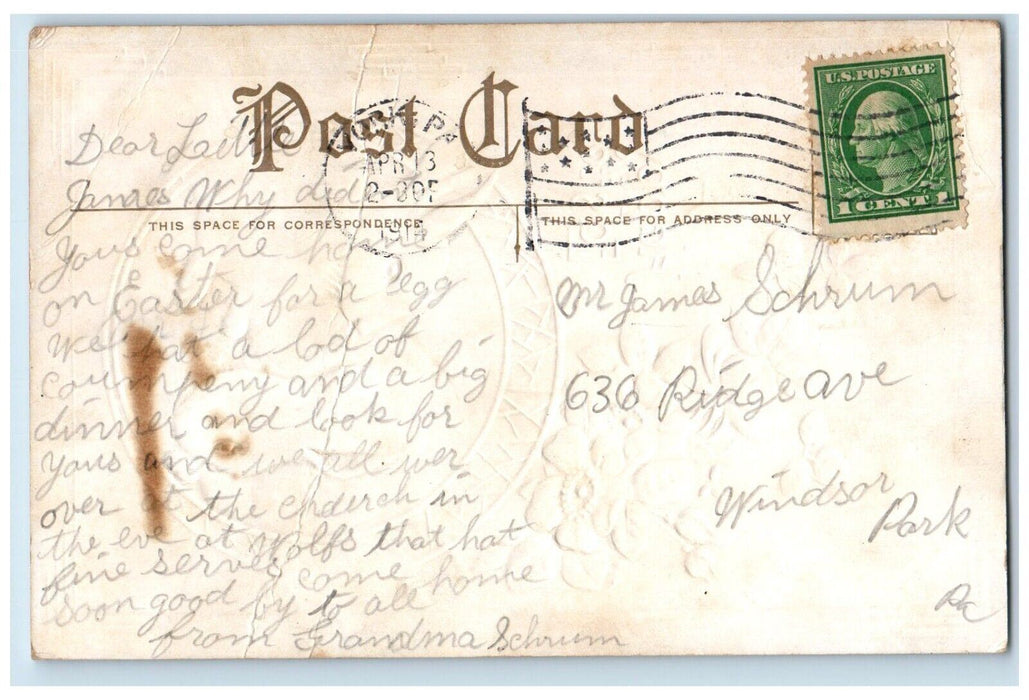 Post Card
YORK, PA
APR 13
2-30P
U.S. POSTAGE
1 CENT 1
THIS SPACE FOR CORRESPONDENCE
THIS SPACE FOR ADDRESS ONLY
Dear
James Why did
yous come
on Easter for a egg
we hat a lod of
coumpeny and a big
dinner and look for
yous and we all wer
over at the cruderch in
the eve at Wolfs that hat
fine serves come home
soon good by to all
from Grandma Schrum
Mr James Schrum
636 Ridge ave
Windsor
Park
Pa